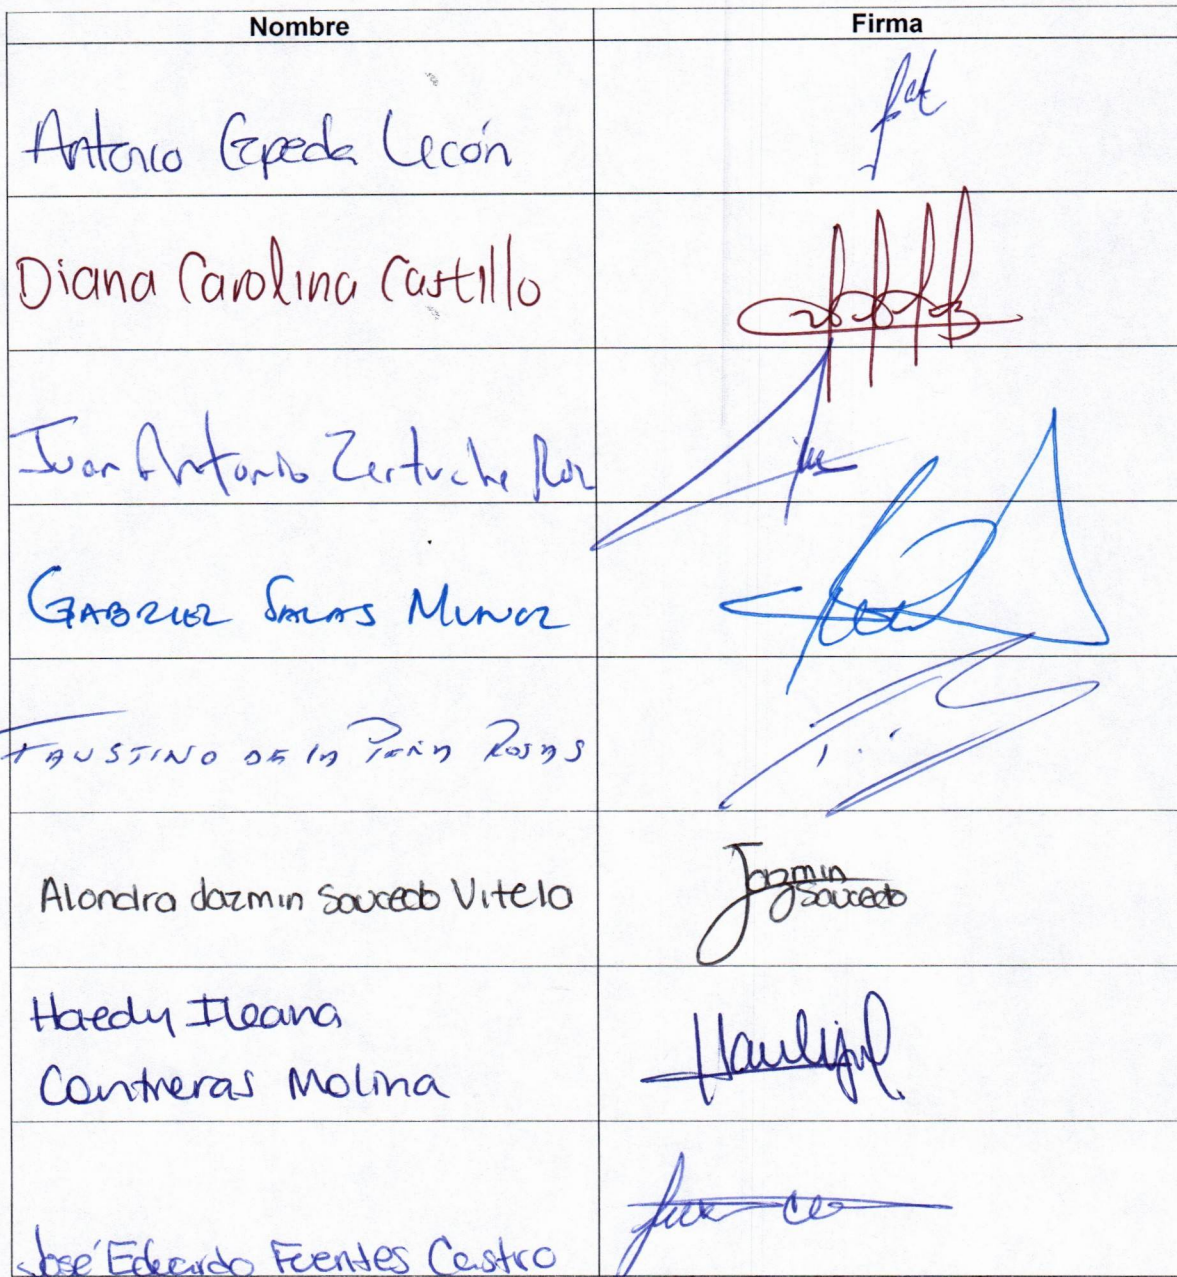 Nombre Firma
Antonio Cepeda Licón
Diana Carolina Castillo
Juan Antonio Zertuche Ruz
GABRIEL SALAS MUNOZ
FAUSTINO DE LA PEÑA ROSAS
Alondra Jazmin Saucedo Vitela Jazmin
Saucedo
Haedy Ileana
Contreras Molina
José Eduardo Fuentes Castro